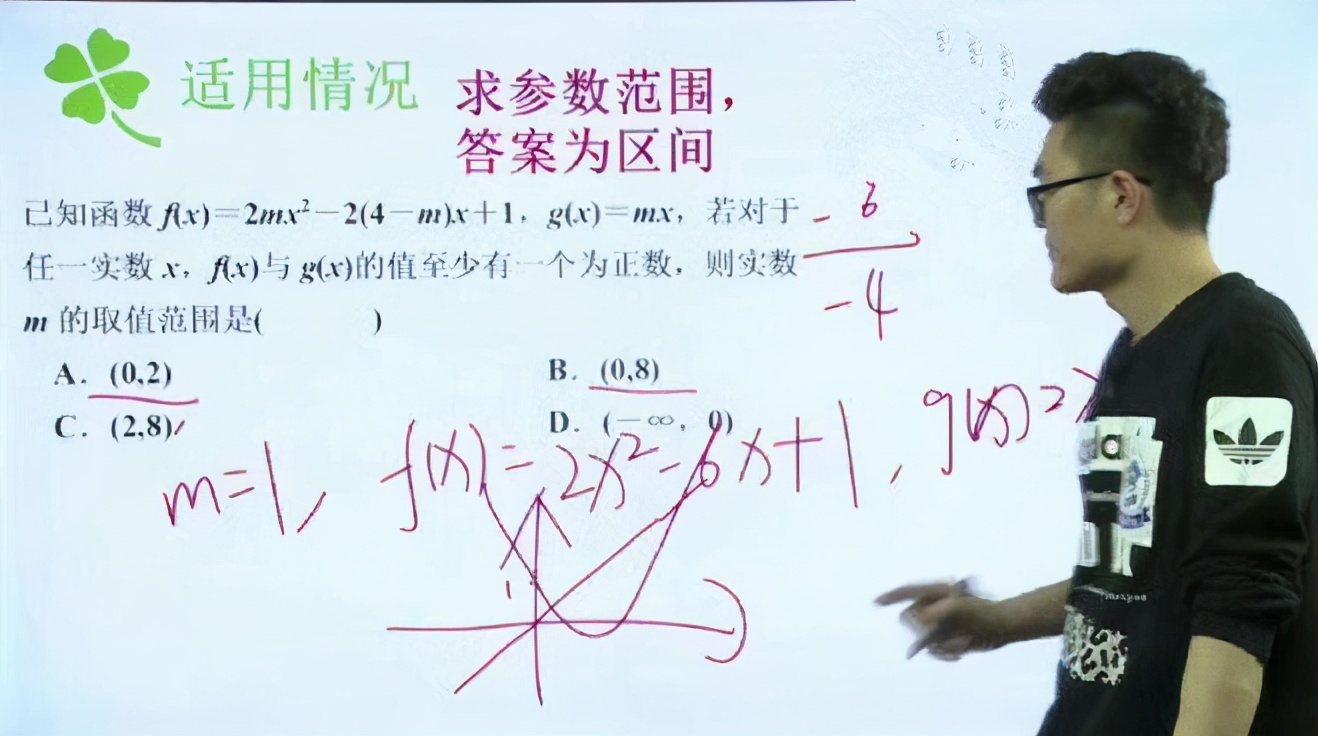 适用情况 求参数范围，
答案为区间
已知函数 f(x)=2mx²-2(4-m)x+1，g(x)=mx，若对于
任一实数 x，f(x)与 g(x)的值至少有一个为正数，则实数
m 的取值范围是( )
-6
-4
A．(0,2) B．(0,8)
C．(2,8) D．(-∞，0)
m=1, f(x)=2x²-6x+1, g(x)=x
1